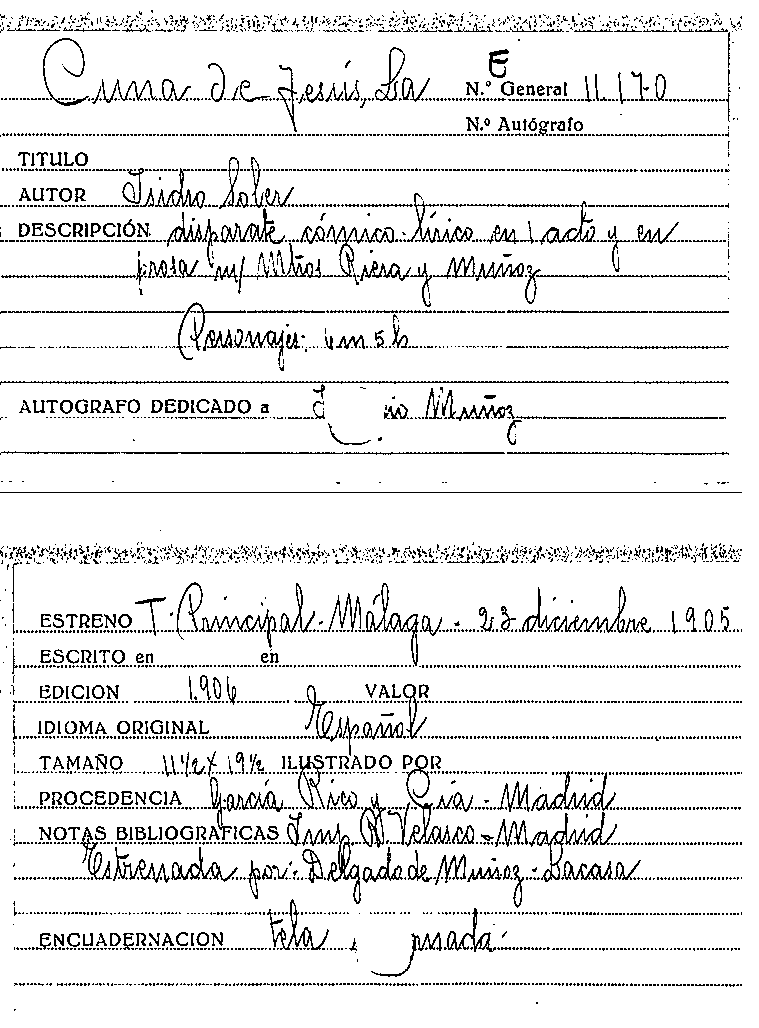 Cuna de Jesús, La
E
N.º General 11170
N.º Autógrafo
TITULO
AUTOR Isidro Soler
DESCRIPCIÓN disparate cómico-lírico en 1 acto y en
prosa m/ Mtros Riera y Muñoz
Personajes: 6 m 5 h
AUTOGRAFO DEDICADO a Muñoz
ESTRENO T. Principal - Málaga - 23 diciembre 1905
ESCRITO en en
EDICION 1.906 VALOR
IDIOMA ORIGINAL Español
TAMAÑO 11 1/2 X 19 1/2 ILUSTRADO POR
PROCEDENCIA García Rico y Cía - Madrid
NOTAS BIBLIOGRAFICAS Imp. R. Velasco = Madrid
Estrenada por: Delgado de Muñoz - Lacasa
ENCUADERNACION tela